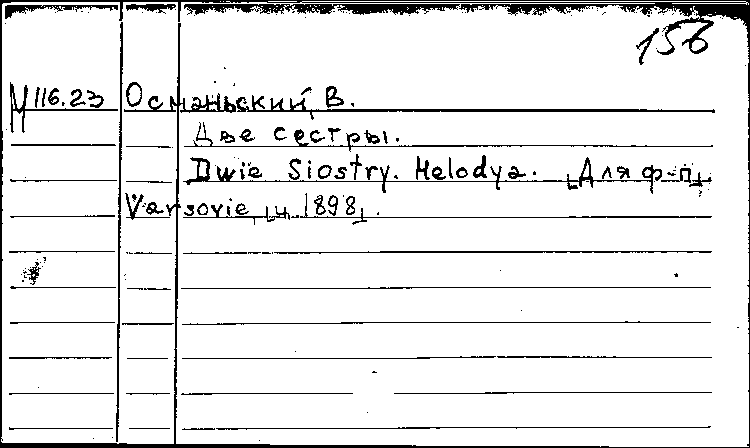 156
М 116.23 Османьский, В.
Две сестры.
Dwie Siostry. Melodya. [Для ф-п]
Varsovie, [ц. 1898].